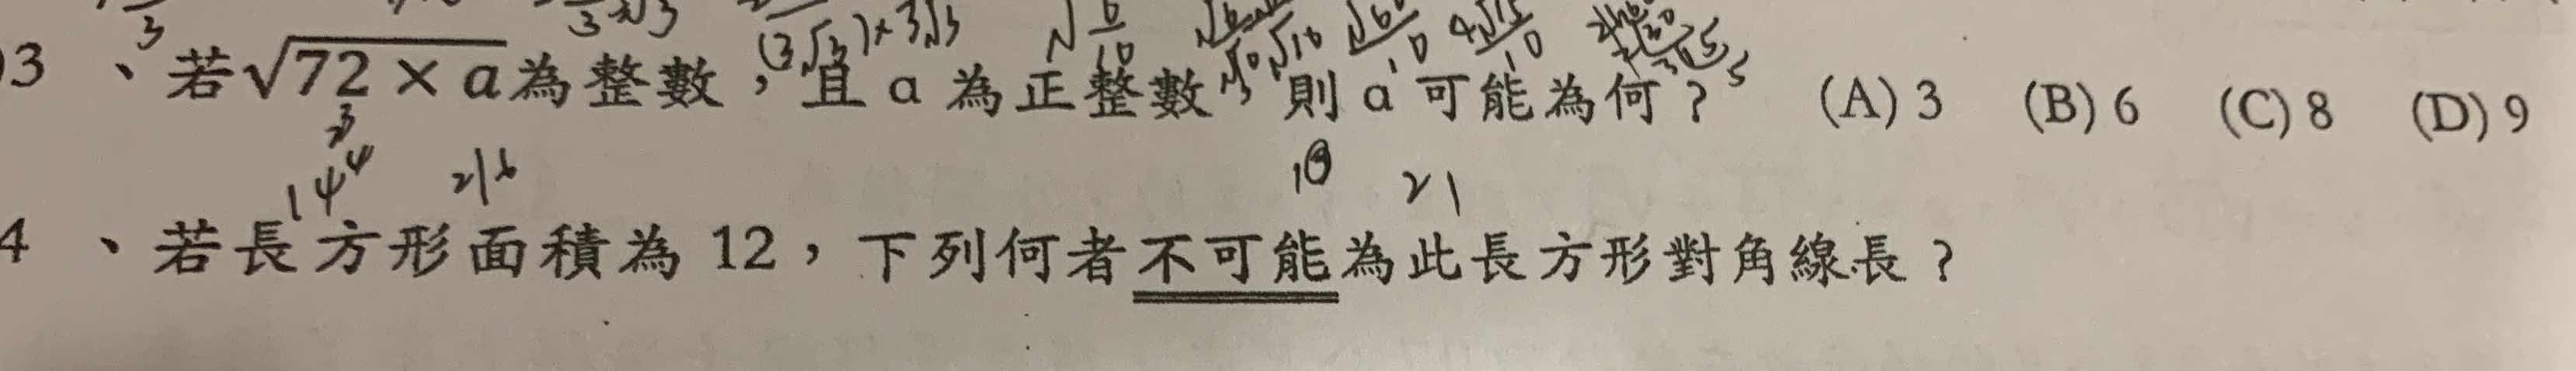 3、若√72 × a為整數，且 a 為正整數，則 a 可能為何？ (A) 3 (B) 6 (C) 8 (D) 9
144 216 21
4、若長方形面積為 12，下列何者不可能為此長方形對角線長？